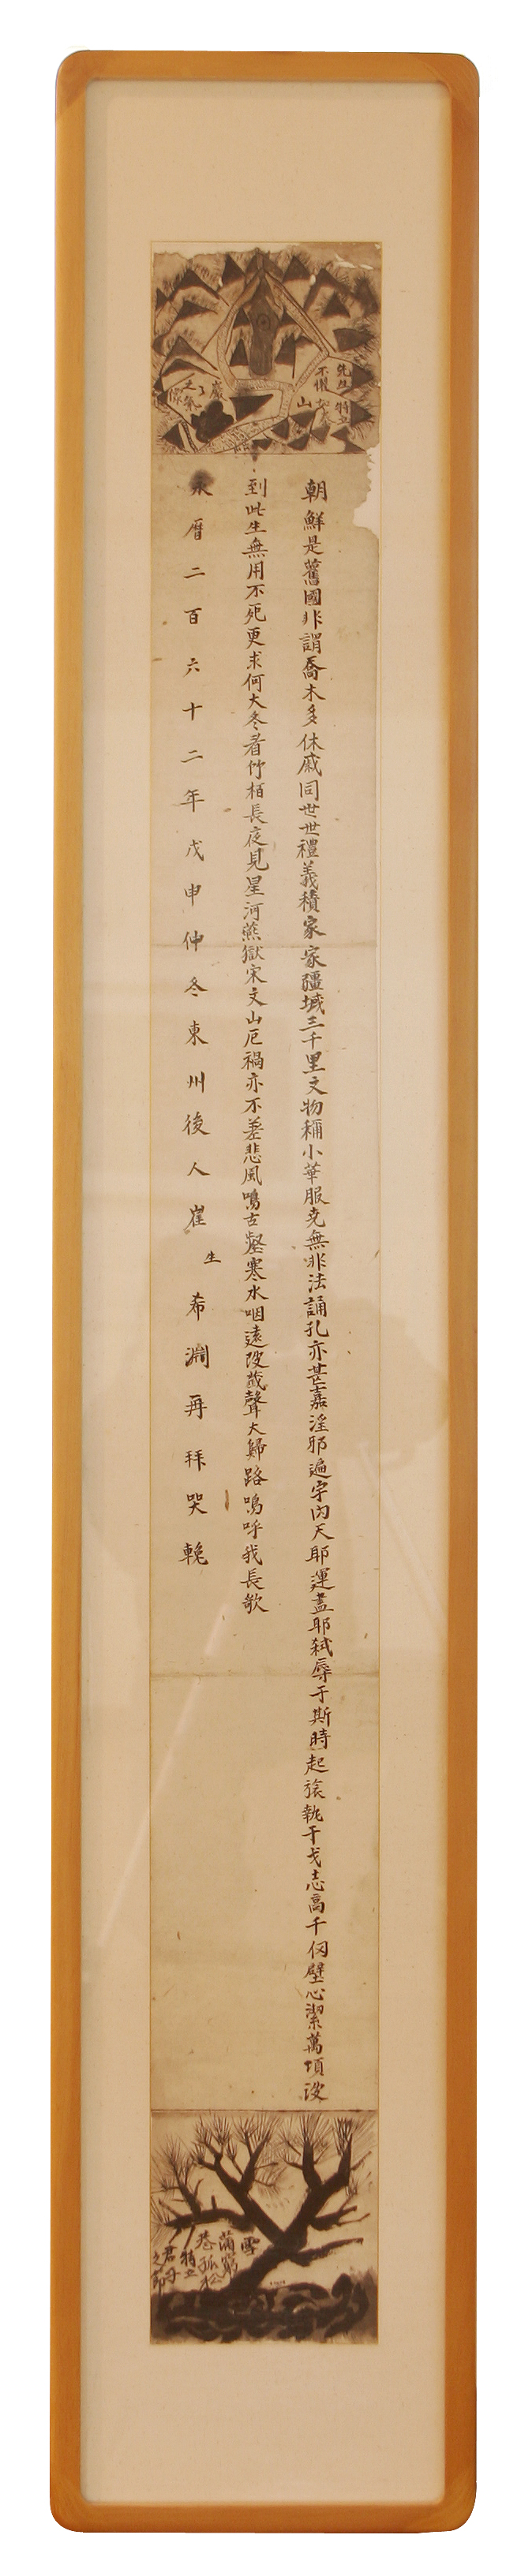 先生特立
不懼如
山
巖
之氣
像
朝鮮是舊國非謂喬木多休戚同世世禮義積家家疆域三千里文物稱小華服堯無非法誦孔亦甚嘉淫邪遍宇內天耶運盡耶弑辱于斯時起旅執干戈志高千仞壁心潔萬頃波
到此生無用不死更求何大冬看竹栢長夜見星河燕獄宋文山厄禍亦不差悲風鳴古壑寒水咽遠波薤聲大歸路嗚呼我長歌
永曆二百六十二年戊申仲冬東州後人崔生希淵再拜哭輓
雪
滿窮
巷孤松
特立
君子
之節